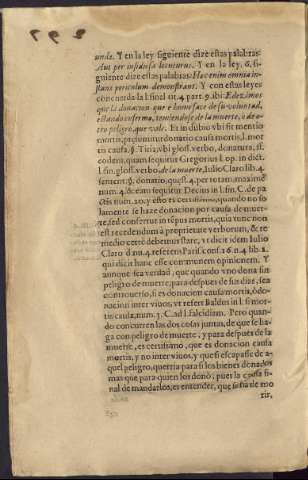 297
unde. Y en la ley siguiente dize estas palabras.
Aut per insidias locuturus. Y en la ley. 6. si-
guiente dize estas palabras. Hæc enim omnia in-
stans periculum demonstrant. Y con estas leyes
concuerda la l. final tit. 4. part. 5. ibi: E dezimos
que la donacion que el home faze de su voluntad,
estando enfermo, temiendose de la muerte, o de o-
tro peligro, que vale. Et in dubio vbi fit mentio
mortis, præsumitur donatio causa mortis, l. mor
tis causa, §. Titia, vbi gloss. verbo, denatura, ff.
eodem, quam sequitur Gregorius l. op. in dict.
l. fin. gloss. verbo, de la muerte, Iulio Claro lib. 4.
sentent. §. donatio, quæst. 4. per totam, maximè
num. 4. & eam sequitur Decius in l. fin. C. de pa-
ctis num. 20. y esto es certissimo, quando no so
lamente se haze donacion por causa de muer-
te, sed confertur in tempus mortis, quia tunc non
est recedendum à proprietate verborum, &
medio certè debemus stare, vt dicit idem Iulio
Claro d. nu. 4. refiere a Paris. cons. 26. n. 4. lib. 2.
qui dicit hanc esse communem opinionem. Y
aunque sea verdad, que quando vno dona sin
peligro de muerte, para despues de sus dias, sea
controuerso, si es donacion causa mortis, ò do-
nacion inter viuos, vt refert Baldus in l. si mor-
tis causa, num. 3. C. ad l. falcidiam. Pero quan-
do concurren las dos cosas juntas, de que se ha-
ga con peligro de muerte, y para despues de la
muerte, es certissimo, que es donacion causa
mortis, y no inter viuos, y que si escapasse de a-
quel peligro, querria para si los bienes donados
mas que para quien los donò; pues la causa fi-
nal de mandarlos, es entender, que se ha de mo
rir,